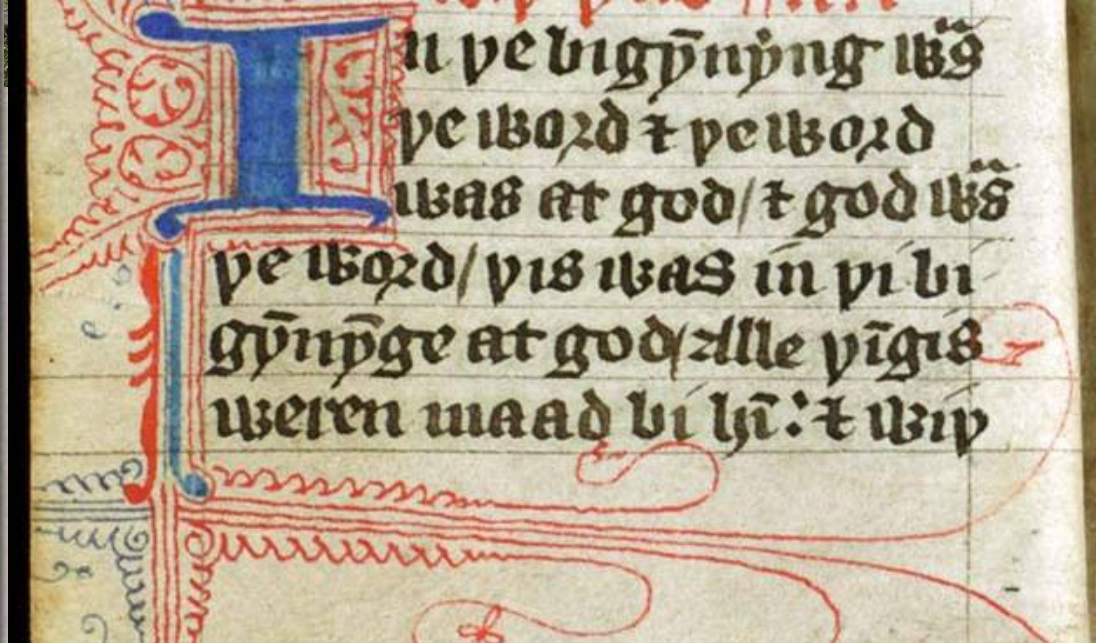 In þe bigȳnẏng wᵃs
þe word ⁊ þe word
was at god/ ⁊ god wᵃs
þe word/ þis was in þi bi
gȳnȳge at god/ Alle þīgis
weren maad bi hī: ⁊ wiþ